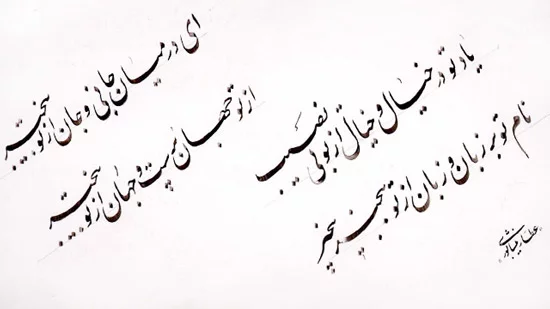 ای در میان جانی و جان از تو بیخبر
از تو جهان پر است و جهان از تو بیخبر
یاد تو در خیال و خیال از تو بی نصیب
نام تو بر زبان و زبان از تو بیخبر
عطار نیشابوری